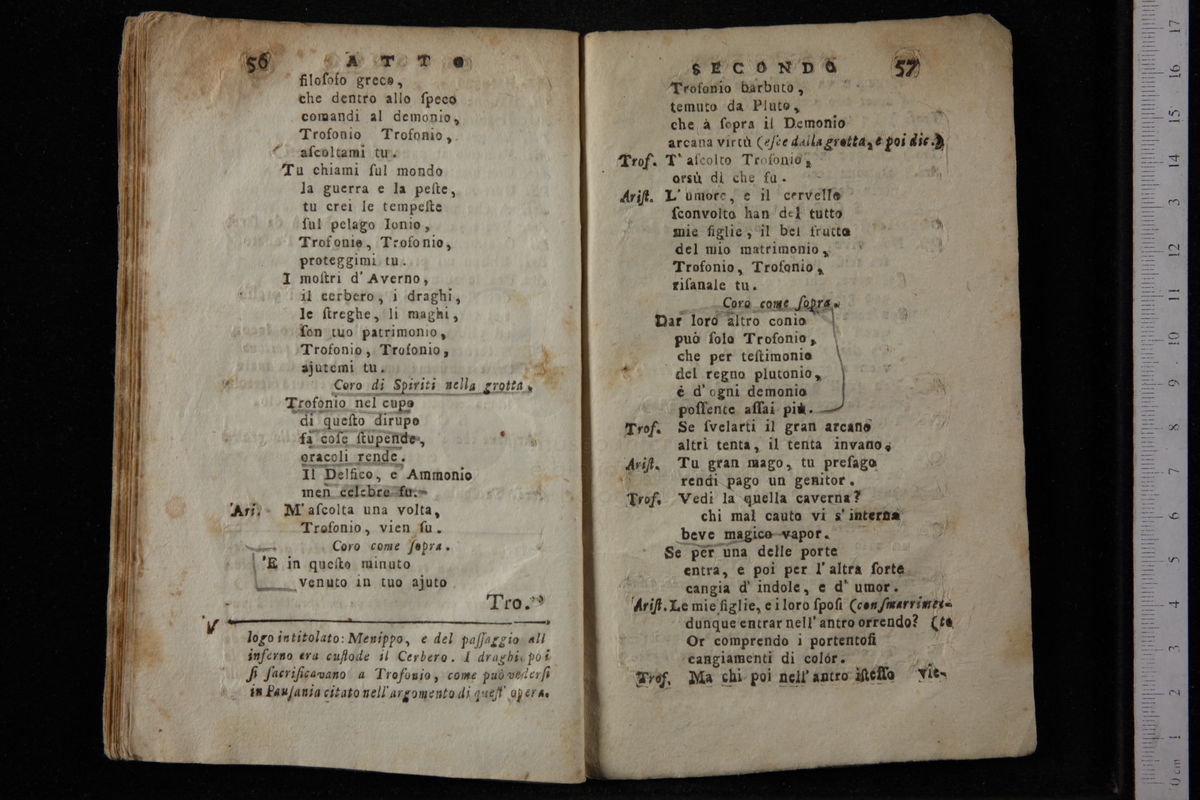 56 ATTO
filoſofo greco,
che dentro allo ſpeco
comandi al demonio,
Trofonio Trofonio,
aſcoltami tu.
Tu chiami ſul mondo
la guerra e la peſte,
tu crei le tempeſte
ſul pelago Ionio,
Trofonio, Trofonio,
proteggimi tu.
I moſtri d'Averno,
il cerbero, i draghi,
le ſtreghe, li maghi,
ſon tuo patrimonio,
Trofonio, Trofonio,
ajutemi tu.
Coro di Spiriti nella grotta.
Trofonio nel cupo
di queſto dirupo
fa coſe ſtupende,
oracoli rende.
Il Delfico, e Ammonio
men celebre fu.
Ari. M'aſcolta una volta,
Trofonio, vien ſu.
Coro come ſopra.
'E in queſto minuto
venuto in tuo ajuto
Tro.
logo intitolato: Menippo, e del paſſaggio all
inferno era cuſtode il Cerbero. I draghi poi
ſi ſacrificavano a Trofonio, come può vederſi
in Pauſania citato nell'argomento di queſt' opera.
SECONDO 57
Trofonio barbuto,
temuto da Pluto,
che à ſopra il Demonio
arcana virtù (eſce dalla grotta, e poi dic.)
Trof. T'aſcolto Trofonio,
orsù di che fu.
Ariſt. L'umore, e il cervello
ſconvolto han del tutto
mie figlie, il bel frutto
del mio matrimonio,
Trofonio, Trofonio,
riſanale tu.
Coro come ſopra.
Dar loro altro conio
può ſolo Trofonio,
che per teſtimonio
del regno plutonio,
è d'ogni demonio
poſſente aſſai più.
Trof. Se ſvelarti il gran arcano
altri tenta, il tenta invano.
Ariſt. Tu gran mago, tu preſago
rendi pago un genitor.
Trof. Vedi la quella caverna?
chi mal cauto vi s'interna
beve magico vapor.
Se per una delle porte
entra, e poi per l'altra ſorte
cangia d'indole, e d'umor.
Ariſt. Le mie figlie, e i loro ſpoſi (con ſmarrimen-
dunque entrar nell'antro orrendo? (to
Or comprendo i portentoſi
cangiamenti di colór.
Trof. Ma chi poi nell'antro iſteſſo vie-
17
16
15
14
13
12
11
10
9
8
7
6
5
4
3
2
1
0 cm